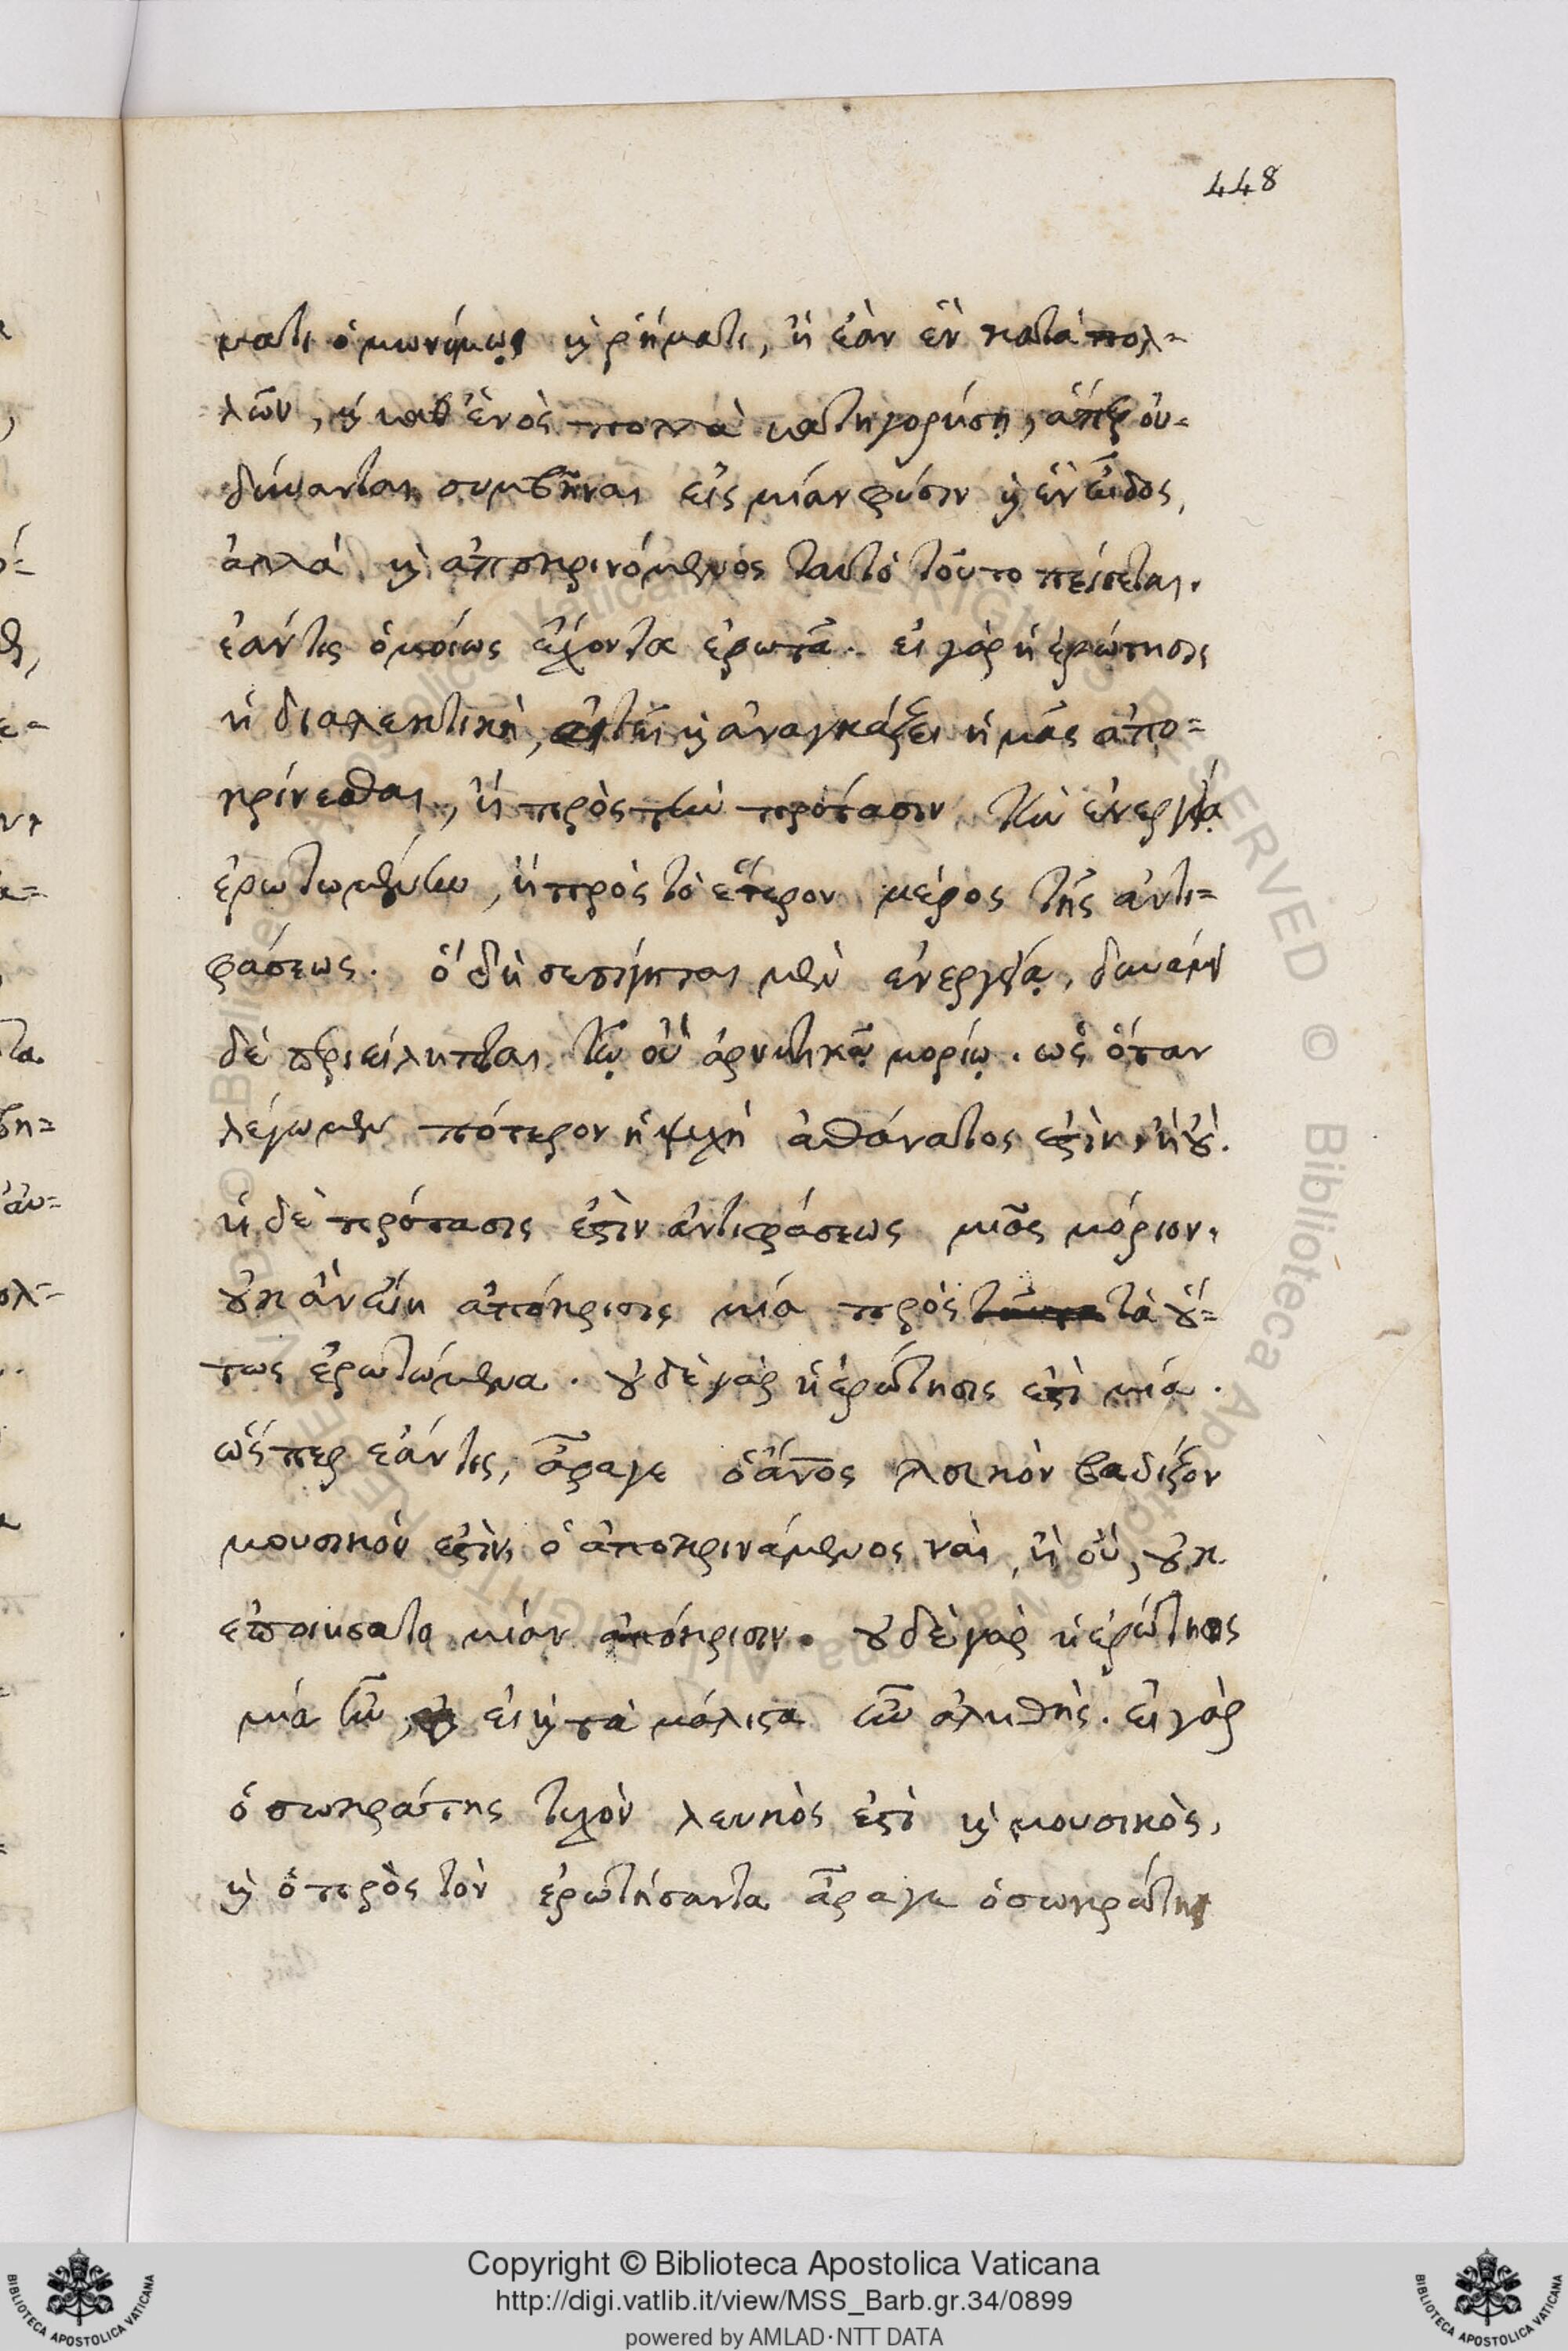 448
ματι ὁμωνύμῳ καὶ ῥήματι, ἢ ἐὰν ἓν κατὰ πολ=
λῶν, ἢ καθ' ἑνὸς πολλὰ κατηγορήσῃ, ἅπερ οὐ
δύνανται συμβῆναι εἰς μίαν φύσιν καὶ ἓν εἶδος,
ἀλλὰ καὶ ἀποκρινόμενος ταυτὸ τοῦτο πείσεται.
ἐάν τις ὁμοίως ἔχοντα ἐρωτᾶ. εἰ γὰρ ἡ ἐρώτησις
ἡ διαλεκτικὴ, αἰτεῖ καὶ ἀναγκάζει ἡμᾶς ἀπο=
κρίνεσθαι, ἢ πρὸς τὴν πρότασιν τὴν ἐνεργείᾳ
ἐρωτωμένην, ἢ πρὸς τὸ ἕτερον μέρος τῆς ἀντι=
φάσεως. ὃ δὴ σεσίγηται μὲν ἐνεργείᾳ, δυνάμει
δὲ περιείληπται τῷ οὒ ἀρνητικῷ μορίῳ. ὡς ὅταν
λέγωμεν πότερον ἡ ψυχὴ ἀθάνατος ἐστὶν, ἢ οὔ.
ἡ δὲ πρότασις ἐστὶν ἀντιφάσεως μιᾶς μόριον.
οὐκ ἂν εἴη ἀπόκρισις μία πρὸς τὰ οὕ=
τως ἐρωτώμενα. οὐδὲ γὰρ ἡ ἐρώτησις ἐστὶ μία.
ὥσπερ ἐάν τις, ἆραγε ὁ ἄνος λευκὸν βαδίζον
μουσικόν ἐστὶν, ὁ ἀποκρινάμενος ναὶ, ἢ οὒ, οὐκ
ἐποιήσατο μίαν ἀπόκρισιν. οὐδὲ γὰρ ἡ ἐρώτησις
μία ἦν, εἰ καὶ τὰ μάλιστα ἦν ἀληθής. εἰ γὰρ
ὁ σωκράτης τυχὸν λευκὸς ἐστὶ καὶ μουσικὸς,
καὶ ὁ πρὸς τὸν ἐρωτήσαντα ἆραγε ὁ σωκράτης
Copyright © Biblioteca Apostolica Vaticana
http://digi.vatlib.it/view/MSS_Barb.gr.34/0899
powered by AMLAD·NTT DATA